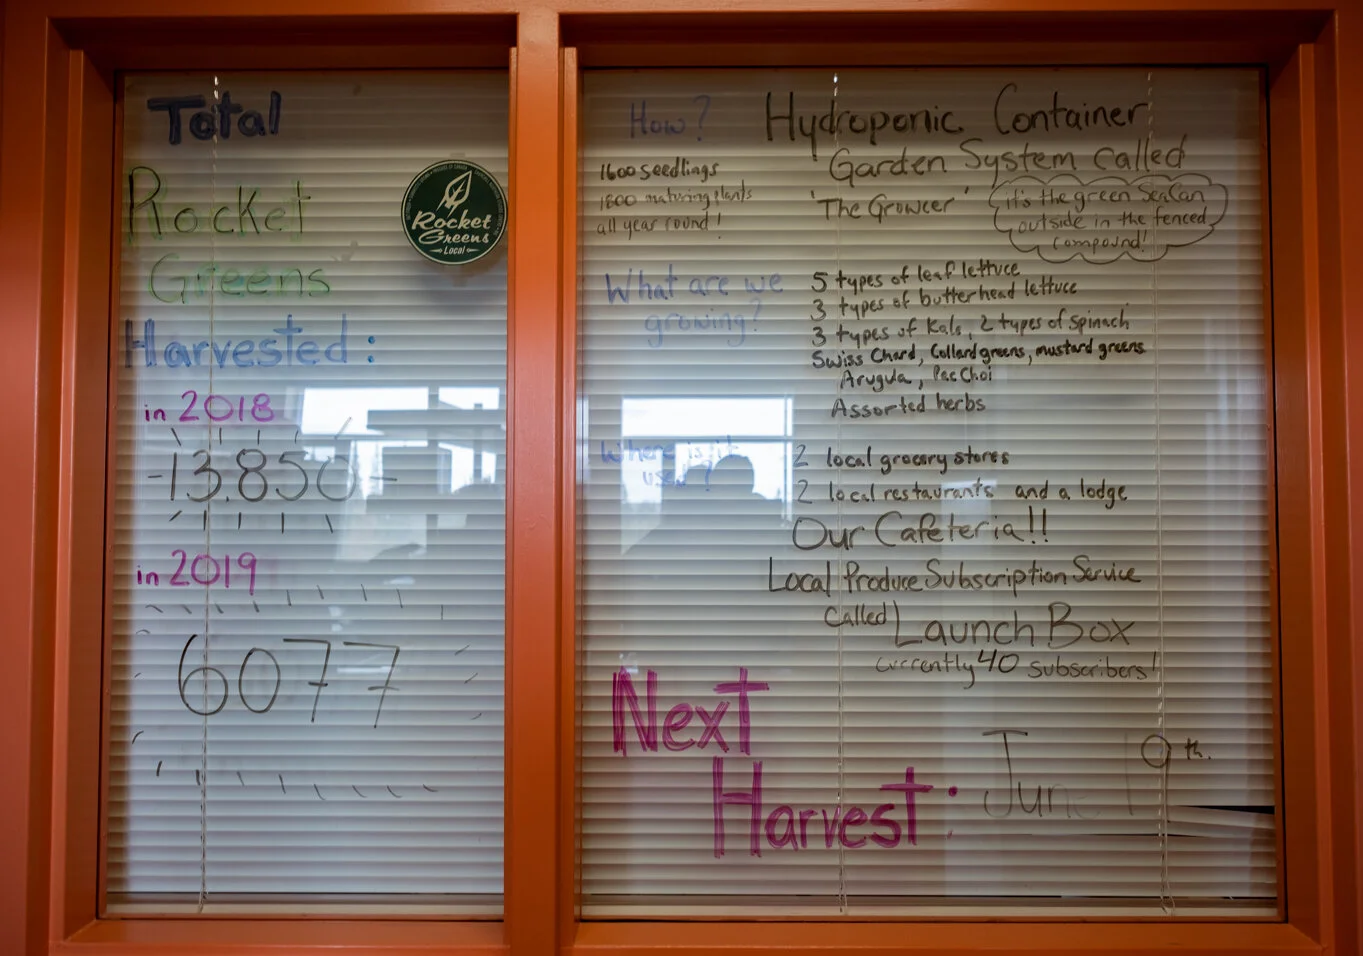 Total
Rocket
Greens
Harvested:
in 2018
13,850
in 2019
6077
Rocket
Greens
Local
How?
1600 seedlings
1800 maturing plants
all year round!
Hydroponic Container
Garden System called
'The Growcer'
it's the green SeaCan
outside in the fenced
compound!
What are we
growing?
5 types of leaf lettuce
3 types of butterhead lettuce
3 types of Kale, 2 types of spinach
Swiss Chard, Collard greens, mustard greens
Arugula, Pac Choi
Assorted herbs
Where is it
used?
2 local grocery stores
2 local restaurants and a lodge
Our Cafeteria!!
Local Produce Subscription Service
Called Launch Box
currently 40 subscribers!
Next
Harvest: June 19th.